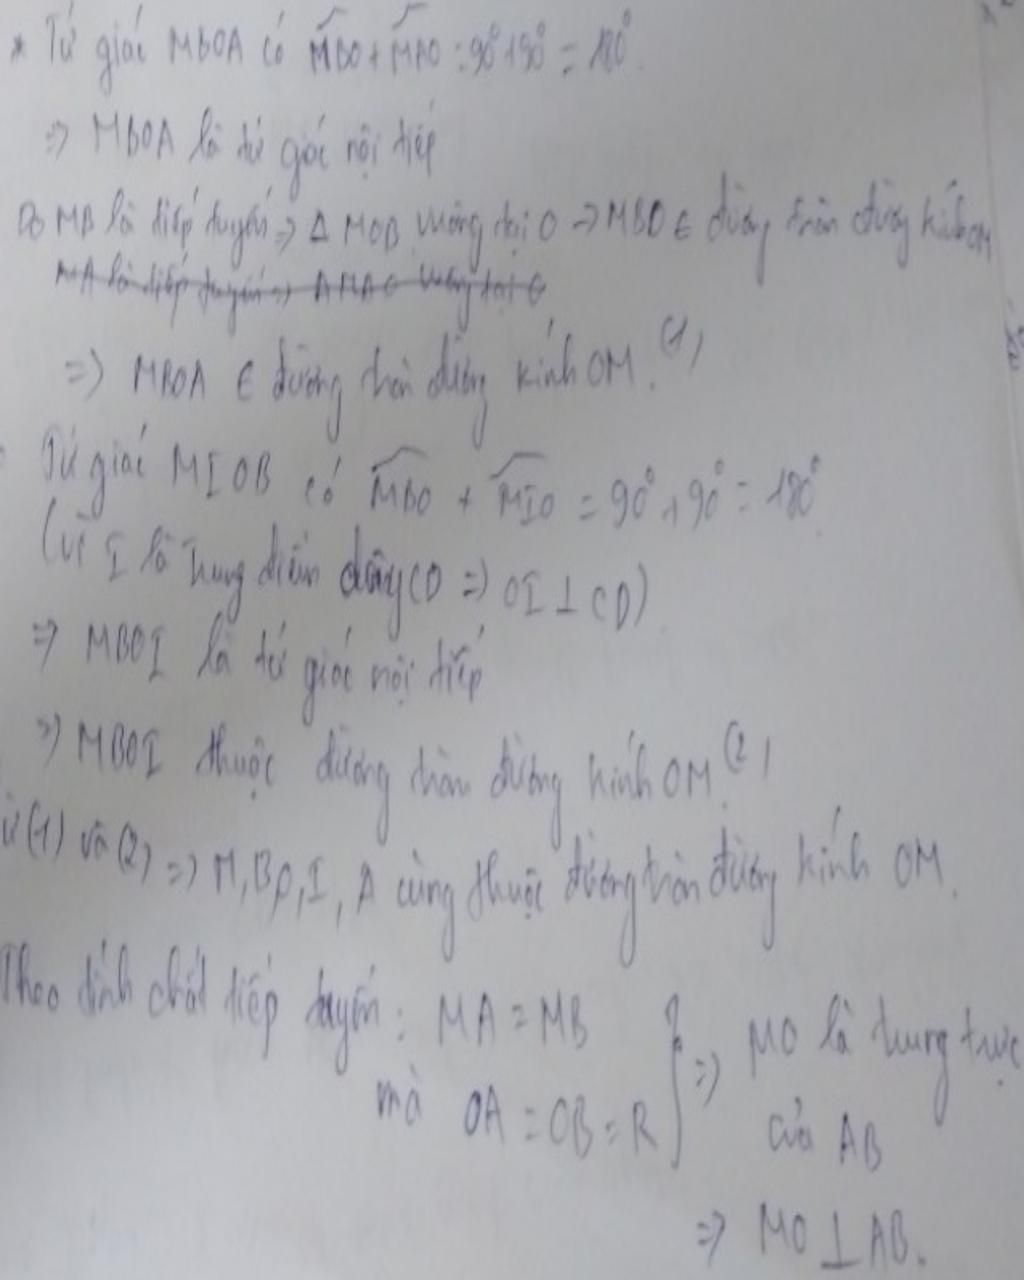 * Tứ giác MBOA có MBO + MAO = 90° + 90° = 180°.
=> MBOA là tứ giác nội tiếp
Do MB là tiếp tuyến => Δ MOB vuông tại O => MBO ∈ đường tròn đường kính OM
MA là tiếp tuyến => Δ MAO vuông tại O
=> MBOA ∈ đường tròn đường kính OM. (1)
Tứ giác MIOB có MBO + MIO = 90° + 90° = 180°
(vì I là trung điểm dây CD => OI ⊥ CD)
=> MBOI là tứ giác nội tiếp
=> MBOI thuộc đường tròn đường kính OM. (2)
ừ (1) và (2) => M, B, O, I, A cùng thuộc đường tròn đường kính OM.
Theo tính chất tiếp tuyến: MA = MB
mà OA = OB = R } => MO là trung trực
của AB
=> MO ⊥ AB.